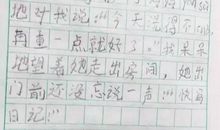 她对我说:“今天混得不
再直一点就好了。”我呆呆
地望着她走出房间，她出
门前还没忘说一声:“快写
日记!”